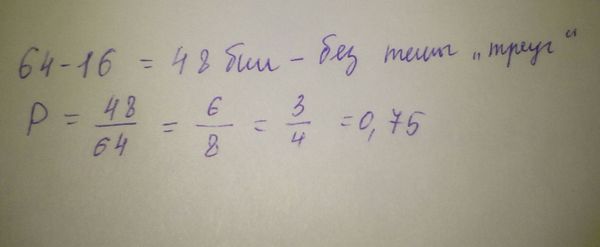 64-16 = 48 бил – без темы „треуг“
P = 48/64 = 6/8 = 3/4 = 0,75